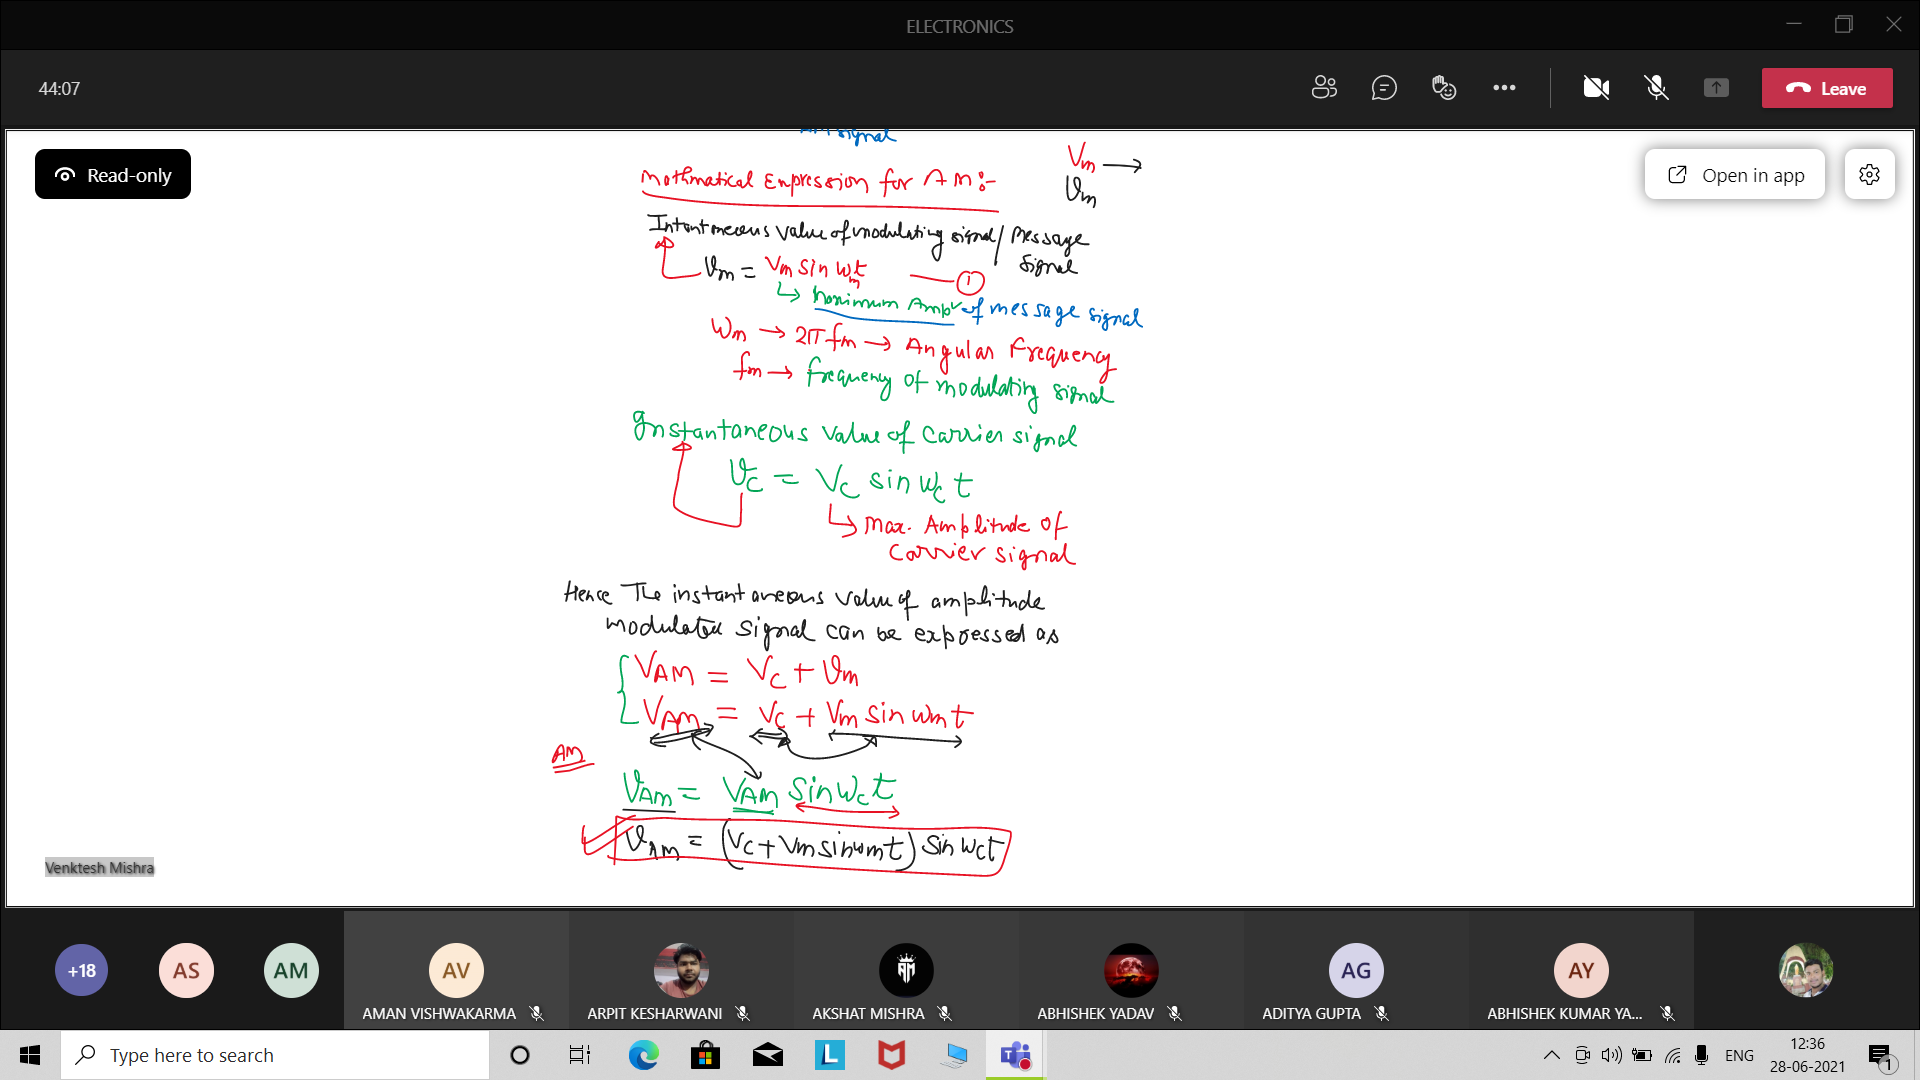 ELECTRONICS
44:07
Leave
Read-only
Open in app
signal
Vm →
vm
Mathmatical Expression for AM:-
Intantneous value of modulating signal / Message signal
vm = Vm sin ωmt — ①
↳ maximum Amp of message signal
ωm → 2π fm → Angular Frequency
fm → frequency of modulating signal
Instantaneous value of carrier signal
vc = Vc sin ωc t
↳ Max. Amplitude of
carrier signal
Hence The instantaneous value of amplitude
modulated signal can be expressed as
VAM = Vc + vm
VAM = Vc + Vm sin ωm t
AM
vAM = VAM sin ωc t
vAM = (Vc + Vm sin ωmt) sin ωct
Venktesh Mishra
+18
AS
AM
AV
AG
AY
AMAN VISHWAKARMA
ARPIT KESHARWANI
AKSHAT MISHRA
ABHISHEK YADAV
ADITYA GUPTA
ABHISHEK KUMAR YA...
Type here to search
L
ENG
12:36
28-06-2021
1